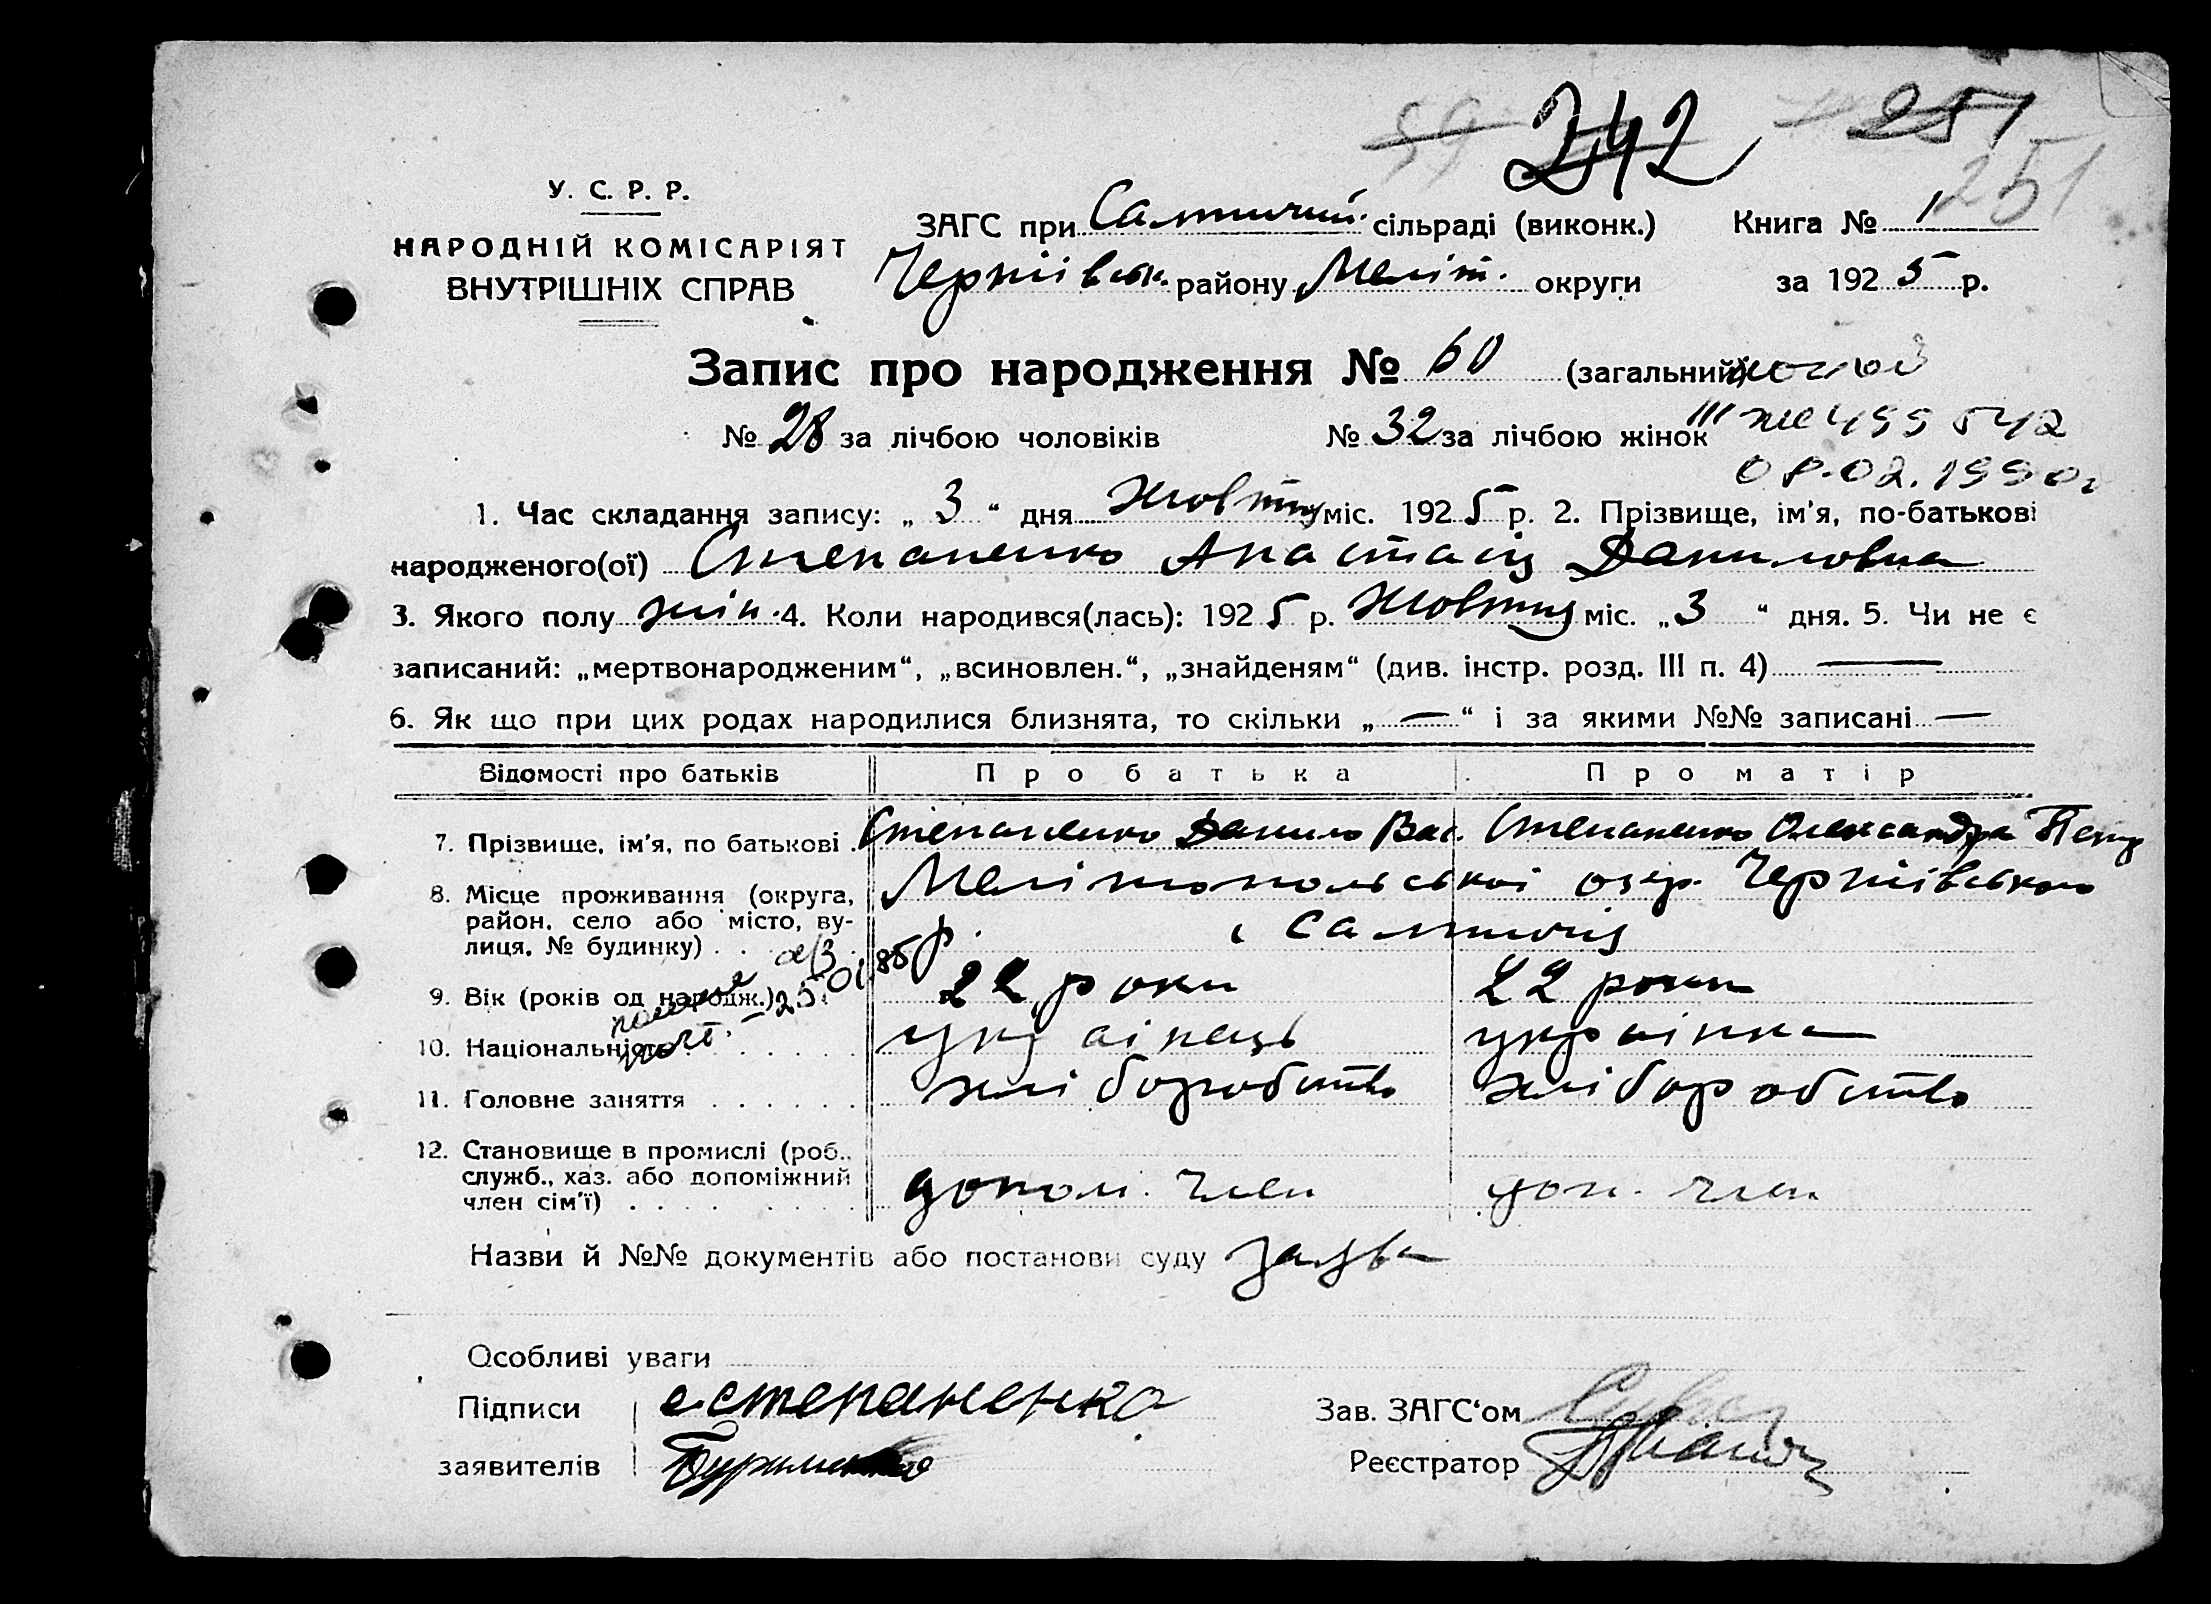 59 242 251
251
У. С. Р. Р.
НАРОДНІЙ КОМІСАРІЯТ
ВНУТРІШНІХ СПРАВ
ЗАГС при Салтичий. сільраді (виконк.) Книга № 1
Чернівськ. району Меліт. округи за 1925 р.
Запис про народження № 60 (загальний)
№ 28 за лічбою чоловіків № 32 за лічбою жінок
III ЖС 499 542
08.02.1990г
1. Час складання запису: „3“ дня Жовтня міс. 1925 р. 2. Прізвище, ім'я, по-батькові
народженого(ої) Степаненко Анастасія Даниловна
3. Якого полу жін. 4. Коли народився(лась): 1925 р. Жовтня міс. „3“ дня. 5. Чи не є
записаний: „мертвонародженим“, „всиновлен.“, „знайденям“ (див. інстр. розд. III п. 4) —
6. Як що при цих родах народилися близнята, то скільки „—“ і за якими №№ записані —
Відомості про батьків Про батька Про матір
7. Прізвище, ім'я, по батькові . Степаненко Данило Вас. Степаненко Олександра Петр
8. Місце проживання (округа, район, село або місто, вулиця, № будинку) . . . Мелітопольської окр. Чернівського
р. с Салтичія
9. Вік (років од народж.) 22 роки 22 роки
10. Національність українець українка
11. Головне заняття . . . . . . хліборобство хліборобство
12. Становище в промислі (роб., служб., хаз. або допоміжний член сім'ї) . . . . допом. член доп. член
Назви й №№ документів або постанови суду заява
Особливі уваги
Підписи о.степаненко Зав. ЗАГС‘ом
заявителів Реєстратор